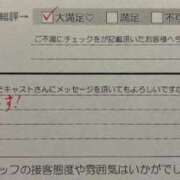 総評→ ✓大満足♡ 満足 不
ご不満にチェックを記載頂いたお客様へ
キャストさんにメッセージを頂いてもよろしいです
す!
ッフの接客態度や雰囲気はいかがでし